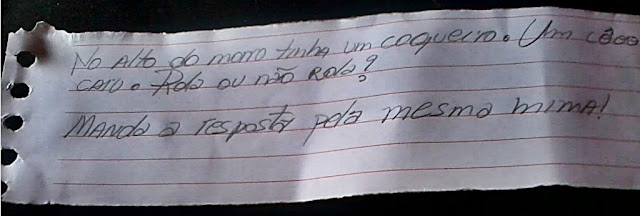 No Alto do morro tinha um coqueiro. Um côco
caio. Rola ou não Rola?
MANda a resposta pela mesma mimA!